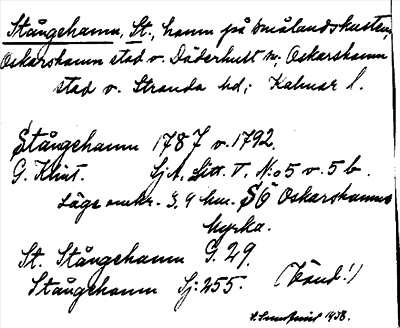 Stångehamn, St., hamn på Smålandskusten,
Oskarshamn stad v. Döderhult sn, Oskarshamn
stad v. Stranda hd; Kalmar l.
Stångehamn 1787 v. 1792.
G. Klint. Sj. A. Litt. T. No 5 v. 5 b.
Läge omkr. 3,9 km. SÖ Oskarshamns
kyrka.
St. Stångehamn G. 29.
Stångehamn Sj: 255. (Tänd!)
1938.